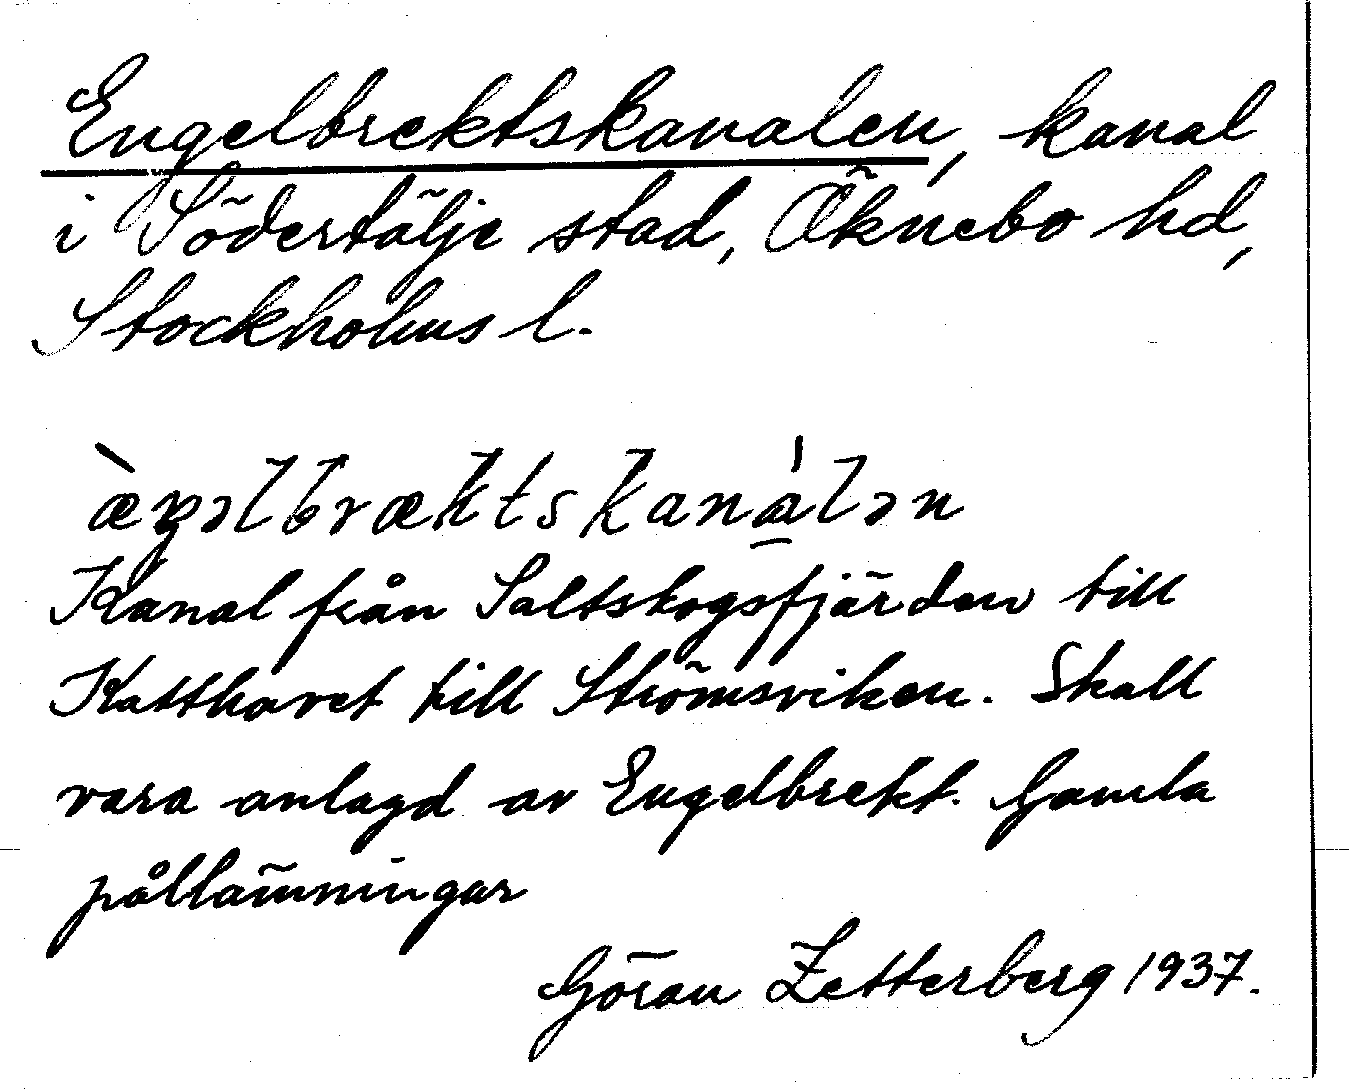 Engelbrektskanalen, kanal
i Södertälje stad, Öknebo hd,
Stockholms l.
æ̀ŋəlbræktskaná̱lən
Kanal från Saltskogsfjärden till
Katthavet till Strömsviken. Skall
vara anlagd av Engelbrekt. Gamla
pållämningar
Göran Zetterberg 1937.